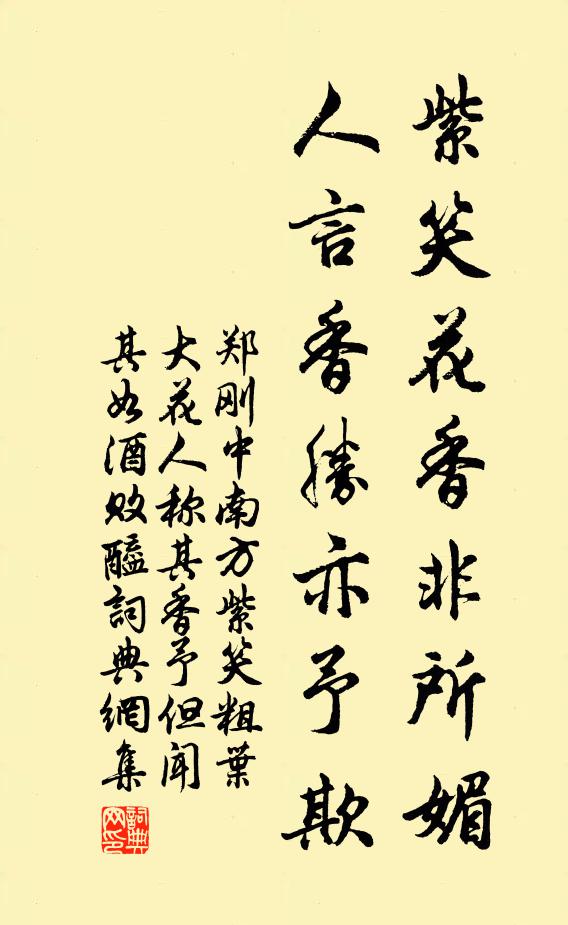 紫笑花香非所媚
人言香勝亦予欺
郑刚中南方紫笑粗葉
大花人称其香予但闻
其如酒败醯詞典網集
詞典
网印